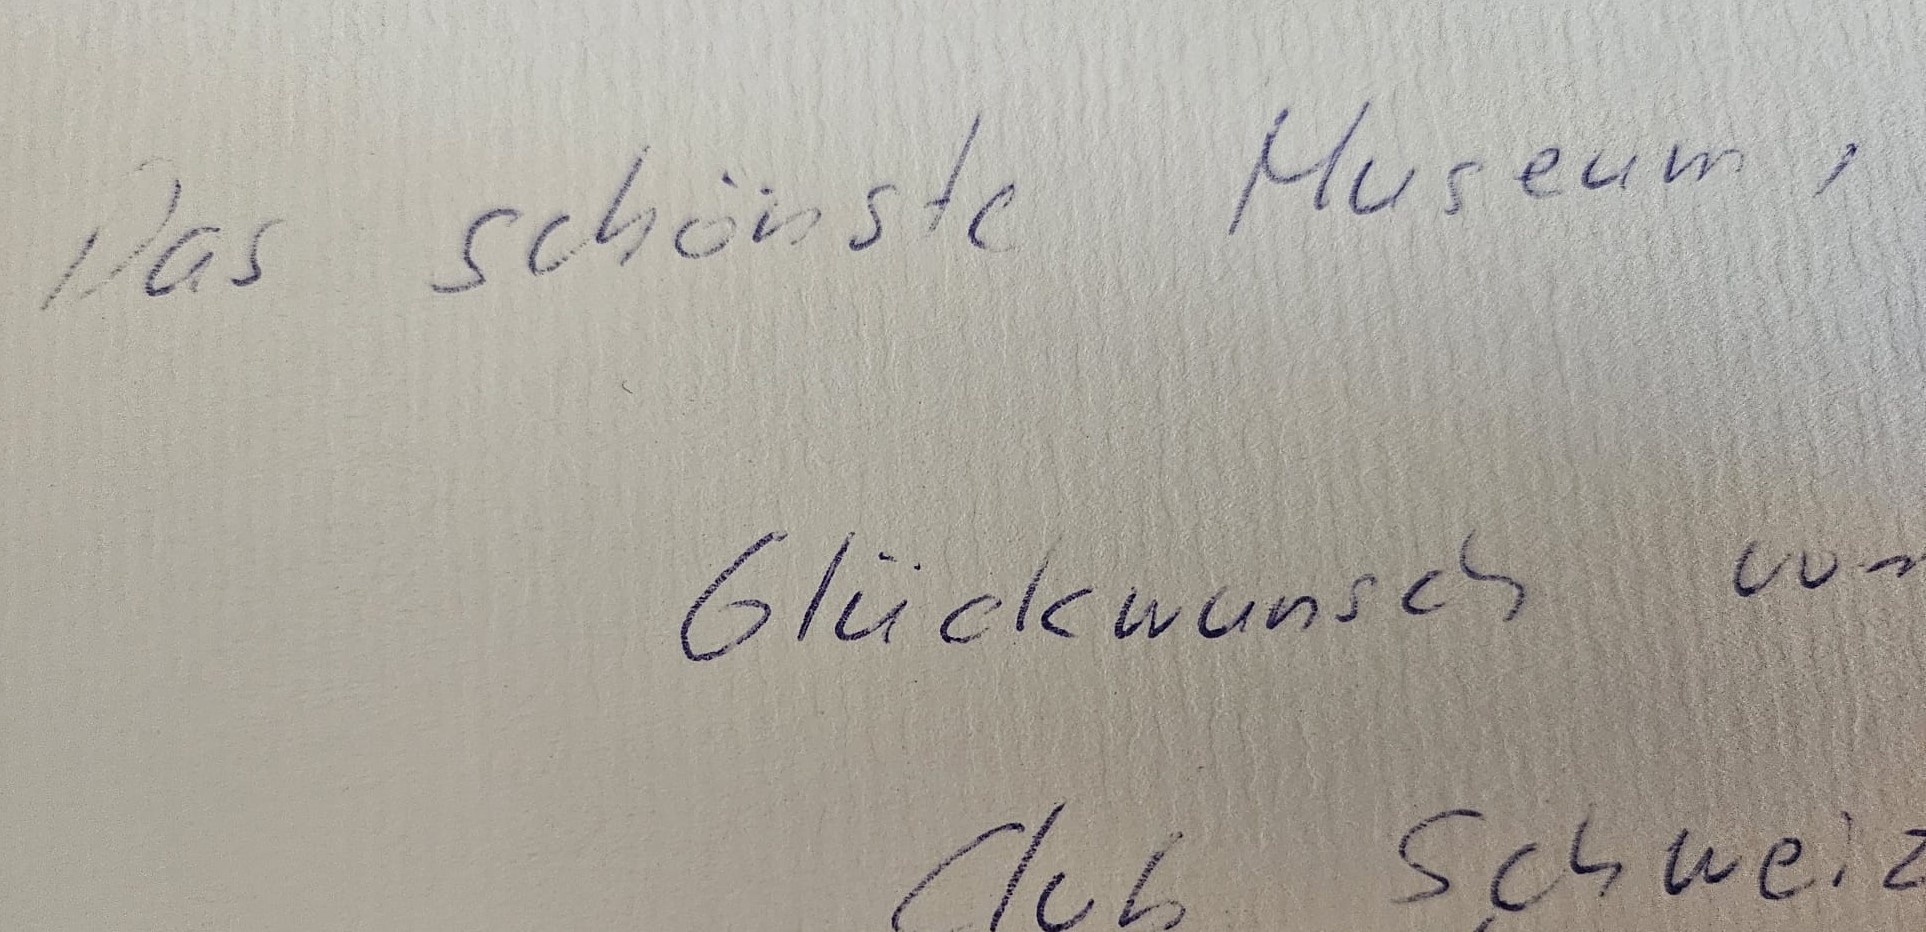 Das schönste Museum,
Glückwunsch vom
Club Schweiz